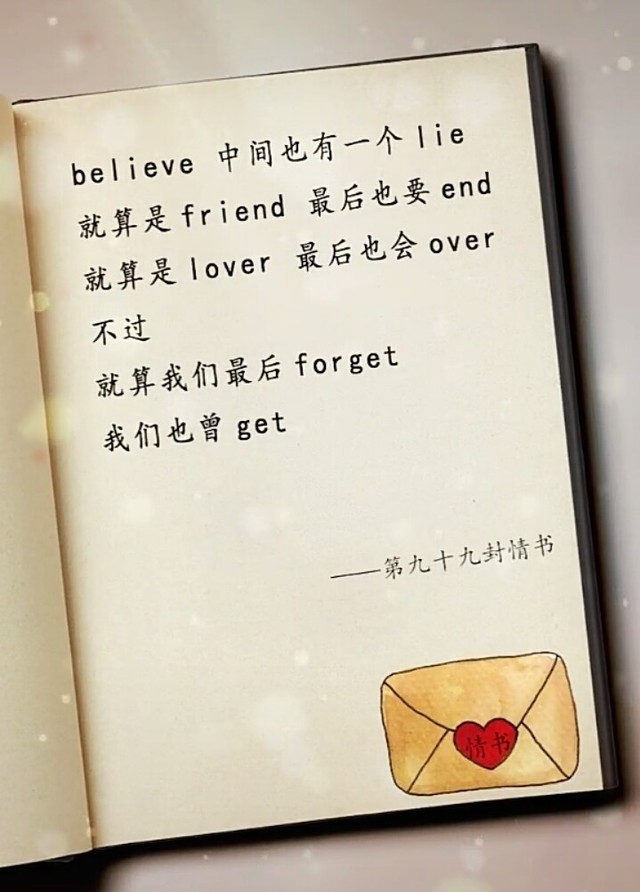 believe 中间也有一个 lie
就算是 friend 最后也要 end
就算是 lover 最后也会 over
不过
就算我们最后 forget
我们也曾 get
——第九十九封情书
情书